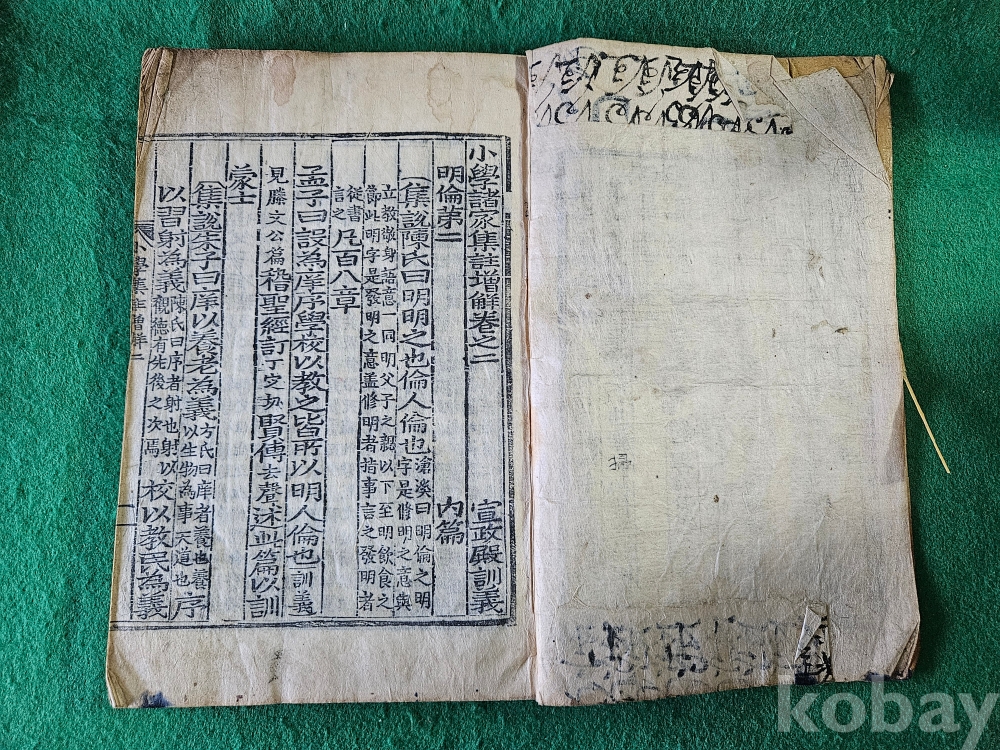 小學諸家集註增解卷之二 宣政殿訓義
明倫第二 內篇
集說陳氏曰明明之也倫人倫也滄溪曰明倫之明字是修明之意與
立教敬身語意一同明父子之親以下至明飲食之
節此明字是發明之意盖修明者指事言之發明者
從書言之凡百八章
孟子曰設為庠序學校以教之皆所以明人倫也訓義
見滕文公篇稽聖經訂丁定切賢傳去聲述此篇以訓
蒙士
集說朱子曰庠以養老為義方氏曰庠者養也養以生物為事天道也序
以習射為義陳氏曰序者射也射以觀德有先後之次焉校以教民為義
小學集註增解二
kobay